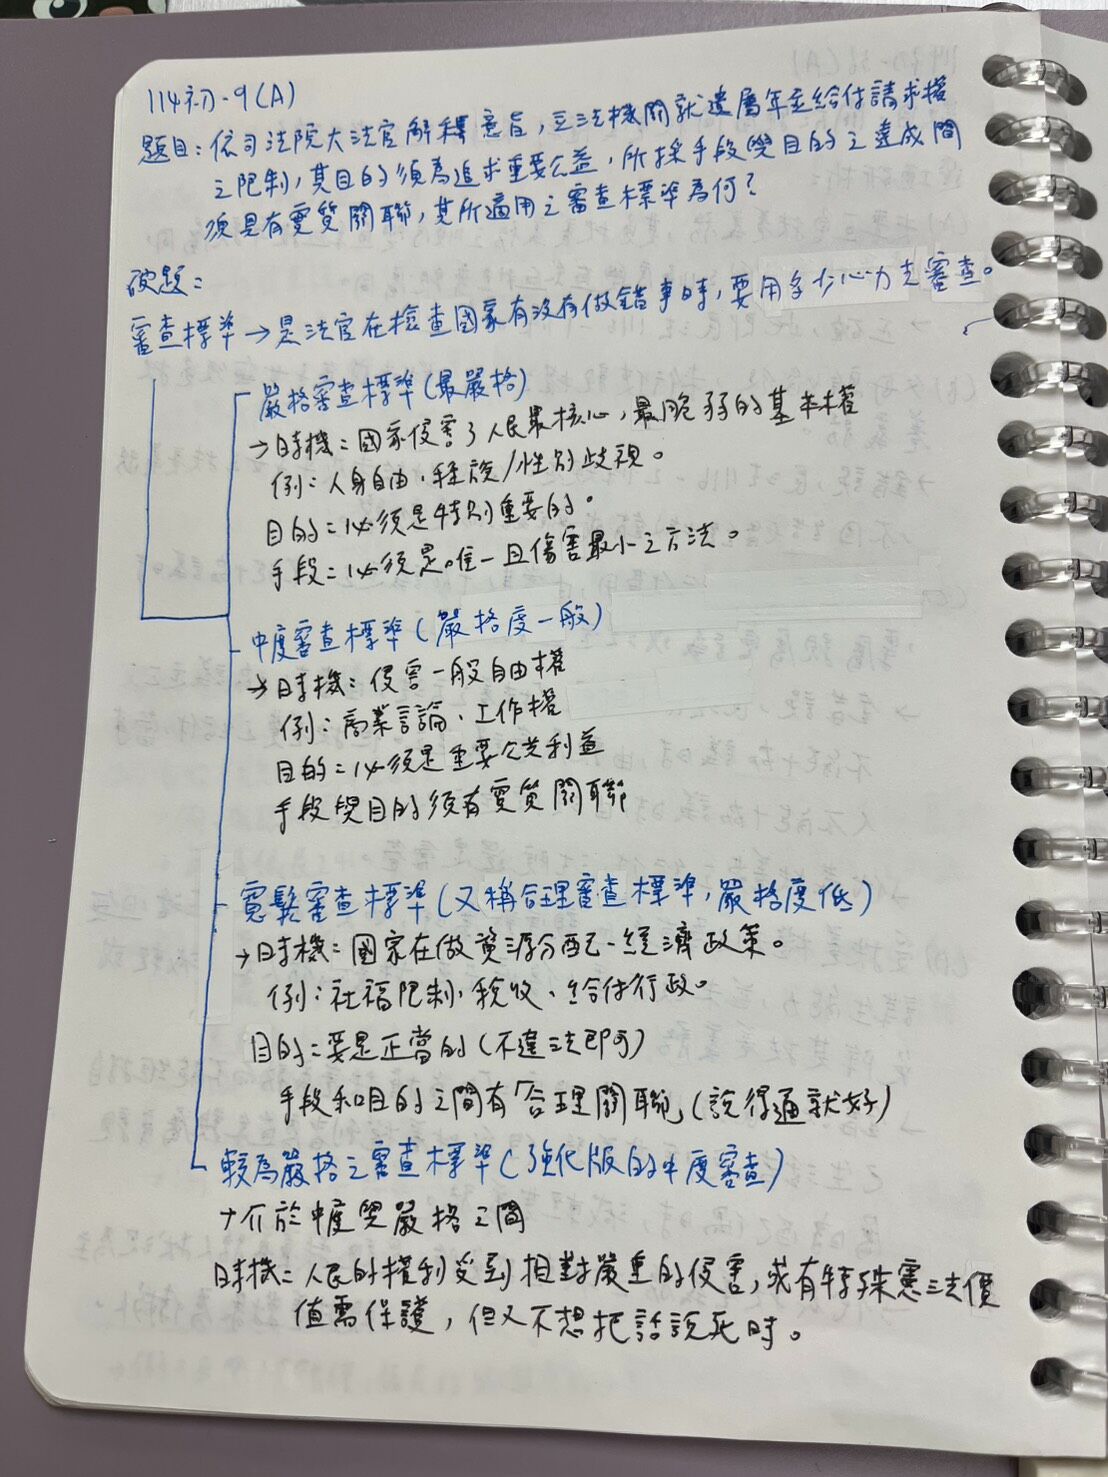 114初-9(A)
題目：依司法院大法官解釋意旨，立法機關就遺屬年金給付請求權
之限制，其目的須為追求重要公益，所採手段與目的之達成間
須具有實質關聯，其所適用之審查標準為何？
破題：
審查標準→是法官在檢查國家有沒有做錯事時，要用多少心力去審查。
嚴格審查標準(最嚴格)
→時機：國家侵害了人民最核心，最脆弱的基本權
例：人身自由、種族/性別歧視。
目的：必須是特別重要的。
手段：必須是唯一且傷害最小之方法。
中度審查標準(嚴格度一般)
→時機：侵害一般自由權
例：商業言論、工作權
目的：必須是重要公共利益
手段與目的須有實質關聯
寬鬆審查標準(又稱合理審查標準，嚴格度低)
→時機：國家在做資源分配、經濟政策。
例：社福限制、稅收、給付行政。
目的：要是正當的(不違法即可)
手段和目的之間有「合理關聯」(說得通就好)
較為嚴格之審查標準(強化版的中度審查)
→介於中度與嚴格之間
時機：人民的權利受到相對嚴重的侵害，或有特殊憲法價
值需保護，但又不想把話說死時。